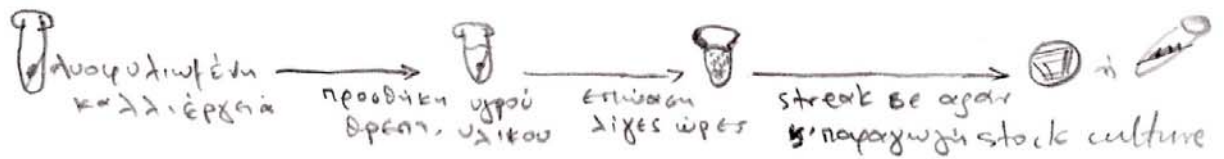 λυοφυλιωμένη
καλλιέργεια
προσθήκη υγρού
θρεπτ. υλικού
επώαση
λίγες ώρες
ή
streak σε αγαρ
κ' παραγωγή stock culture